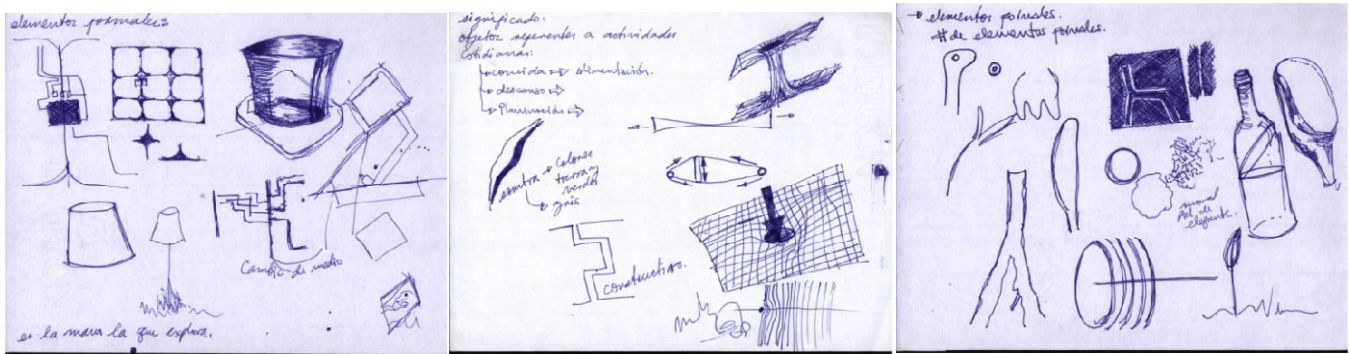 elementos formales:
Cambio de medio
es la mano la que explora.
significado.
objetos referentes a actividades
cotidianas:
comida ⇨ alimentación.
descanso ⇨
iluminación ⇨
colores
tierra y
verdes
gris
constructivo.
→ elementos formales.
# de elementos formales.
piel de
elefante.